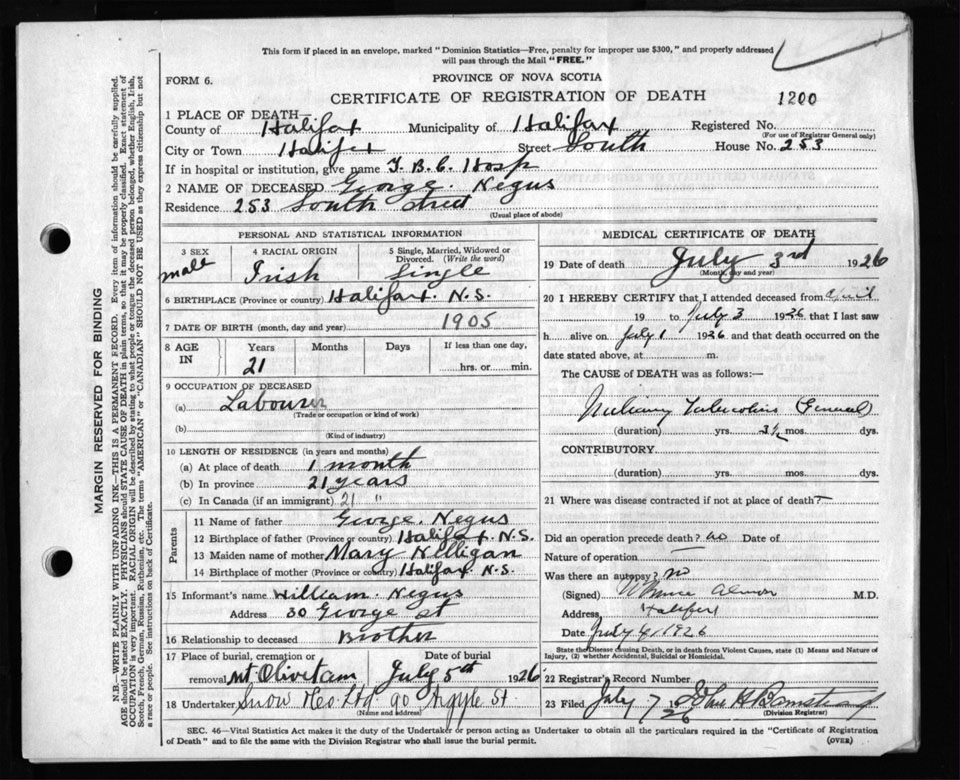 This form if placed in an envelope, marked "Dominion Statistics—Free, penalty for improper use $300," and properly addressed
will pass through the Mail "FREE."
FORM 6.
PROVINCE OF NOVA SCOTIA
CERTIFICATE OF REGISTRATION OF DEATH
1200
1 PLACE OF DEATH—
County of Halifax Municipality of Halifax Registered No.
(For use of Registrar General only)
City or Town Halifax Street South House No. 253
If in hospital or institution, give name T.B.C. Hosp
2 NAME OF DECEASED George. Negus
Residence 253 South Street
(Usual place of abode)
PERSONAL AND STATISTICAL INFORMATION
3 SEX 4 RACIAL ORIGIN 5 Single, Married, Widowed or
Divorced. (Write the word)
male Irish Single
6 BIRTHPLACE (Province or country) Halifax. N.S.
7 DATE OF BIRTH (month, day and year) 1905
8 AGE IN Years Months Days If less than one day,
21 hrs. or min.
9 OCCUPATION OF DECEASED
(a) Labourer
(Trade or occupation or kind of work)
(b)
(Kind of industry)
10 LENGTH OF RESIDENCE (in years and months)
(a) At place of death 1 month
(b) In province 21 years
(c) In Canada (if an immigrant) 21 "
Parents
11 Name of father George. Negus
12 Birthplace of father (Province or country) Halifax N.S.
13 Maiden name of mother Mary Nelligan
14 Birthplace of mother (Province or country) Halifax N.S.
15 Informant's name William. Negus
Address 30 George St
16 Relationship to deceased Brother
17 Place of burial, cremation or Date of burial
removal Mt Olivet am July 5th 1926
18 Undertaker Snow &Co. Ltd 90 Argyle St.
(Name and address)
MEDICAL CERTIFICATE OF DEATH
19 Date of death July 3rd 1926
(Month, day and year)
20 I HEREBY CERTIFY that I attended deceased from April
19 to July 3 1926 that I last saw
h alive on July 1 1926 and that death occurred on the
date stated above, at m.
The CAUSE of DEATH was as follows:—
Miliary Tuberculosis (General)
(duration) yrs. 3½ mos. dys.
CONTRIBUTORY.
(duration) yrs. mos. dys.
21 Where was disease contracted if not at place of death? —
Did an operation precede death? no Date of
Nature of operation —
Was there an autopsy? no
(Signed) Almon M.D.
Address Halifax
Date July 6/1926
State the Disease causing Death, or in death from Violent Causes, state (1) Means and Nature of
Injury, (2) whether Accidental, Suicidal or Homicidal.
22 Registrar's Record Number
23 Filed July 7 1926 John
(Division Registrar)
SEC. 46—Vital Statistics Act makes it the duty of the Undertaker or person acting as Undertaker to obtain all the particulars required in the "Certificate of Registration
of Death" and to file the same with the Division Registrar who shall issue the burial permit. (OVER)
MARGIN RESERVED FOR BINDING
N.B.—WRITE PLAINLY WITH UNFADING INK—THIS IS A PERMANENT RECORD. Every item of information should be carefully supplied.
AGE should be stated EXACTLY. PHYSICIANS should STATE CAUSE OF DEATH in plain terms, so that it may be properly classified. Exact statement of
OCCUPATION is very important. RACIAL ORIGIN will be described by stating to what people or tongue the deceased person belonged, whether English, Irish,
Scotch, French, German, Russian, Ruthenian, etc. The terms "AMERICAN" or "CANADIAN" SHOULD NOT BE USED as they express citizenship but not
a race or people. See instructions on back of Certificate.